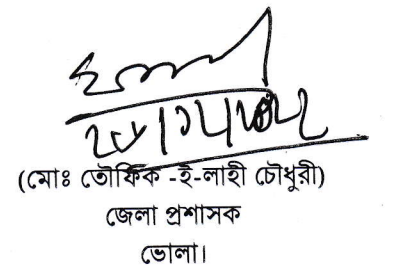 (মোঃ তৌফিক -ই-লাহী চৌধুরী)
জেলা প্রশাসক
ভোলা।